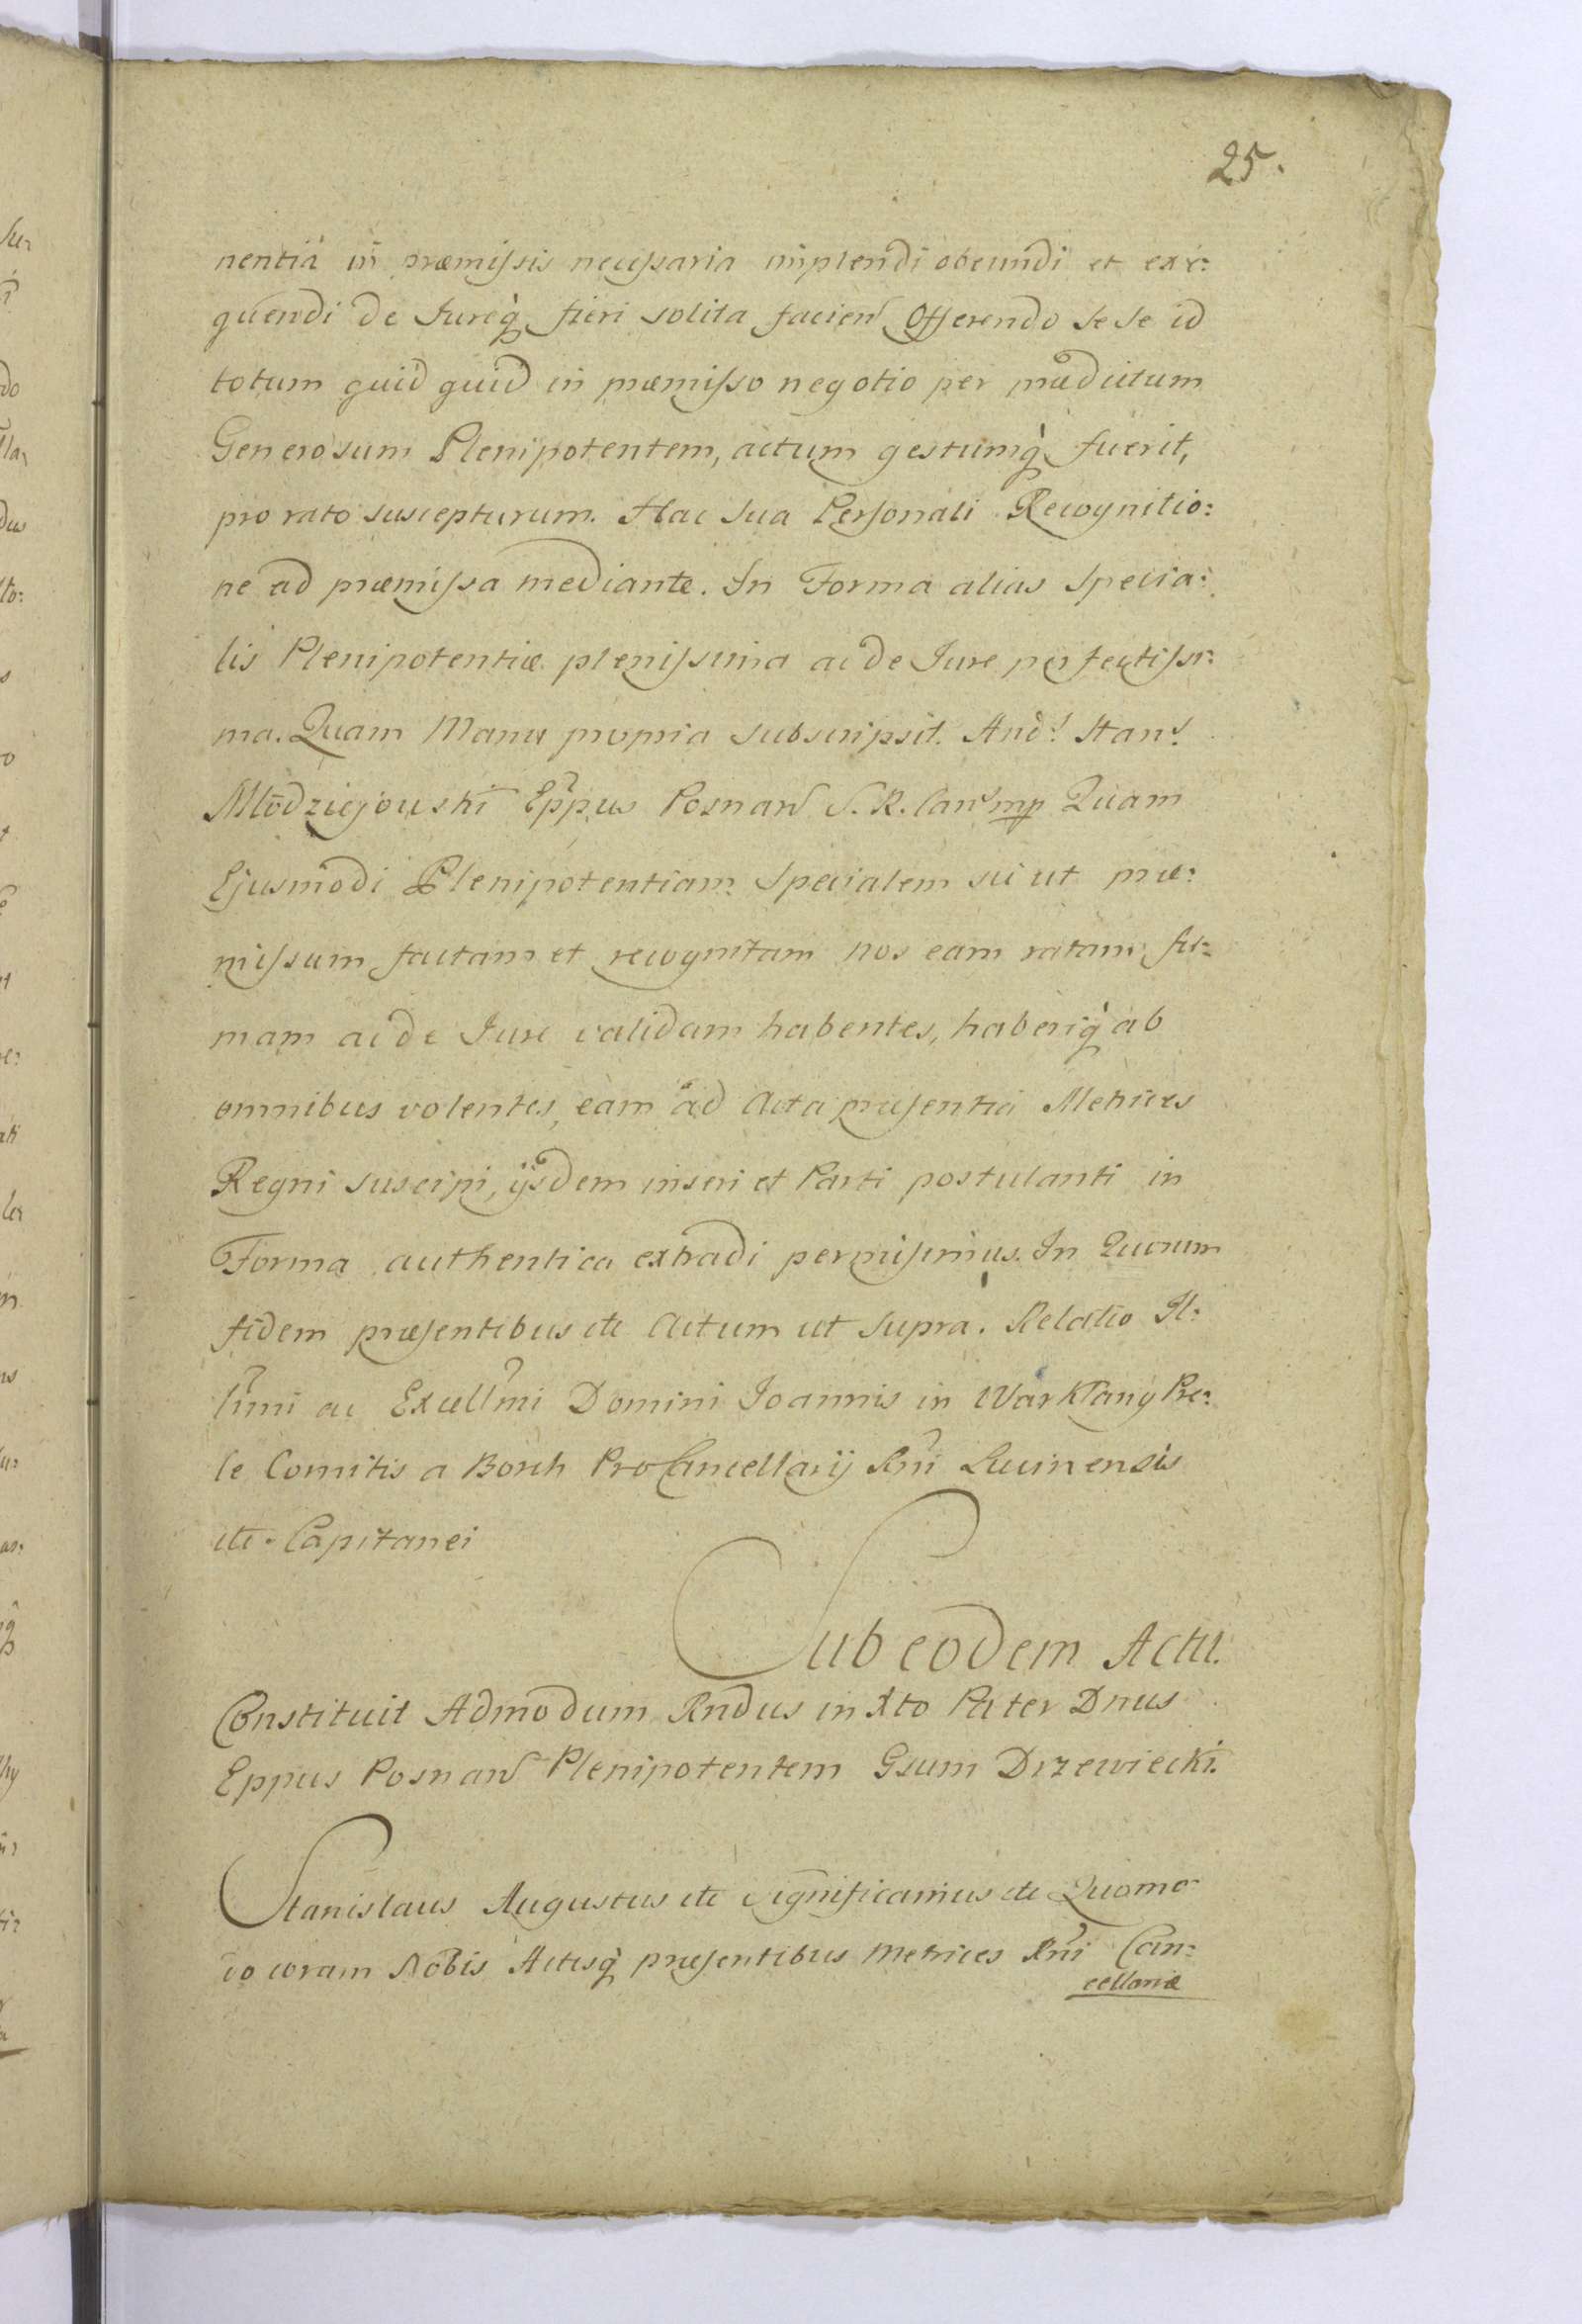 25.
nentia in præmissis necessaria implendi obeundi et exe:
quendi de Jureq̀ fieri solita facien Offerendo sese id
totum quid quid in præmisso negotio per prædictum
Generosum Plenipotentem, actum gestumq̀ fuerit,
pro rato suscepturum. Hac sua Personali Recognitio:
ne ad præmissa mediante. In Forma alias specia:
lis Plenipotentiæ plenissima ac de Jure perfectissi:
ma. Quam Manu propria subscripsit. And: Stan:
Młodziejouski Eppus Posnan S. R. Can mp Quam
Ejusmodi Plenipotentiam Specialem sic ut præ:
missum factam et recognitam nos eam ratam fir:
mam ac de Jure validam habentes, haberiq̀ ab
omnibus volentes, eam ad Acta præsentia Metrices
Regni suscipi, ijsdem inseri et Parti postulanti in
Forma authentica extradi permisimus. In Quorum
fidem præsentibus etc Actum ut supra. Relatio Il:
lmi ac Excellmi Domini Joannis in Warkłany Pre:
le Comitis a Borch ProCancellarij Rni Lucinensis
etc. Capitanei
Sub eodem Actu.
Constituit Admodum Rndus in Xto Pater Dnus
Eppus Posnan Plenipotentem Gsum Drzewiecki.
Stanislaus Augustus etc Significamus etc Quomo
do coram Nobis Actisq̀ præsentibus Metrices Rni Can:
cellariæ